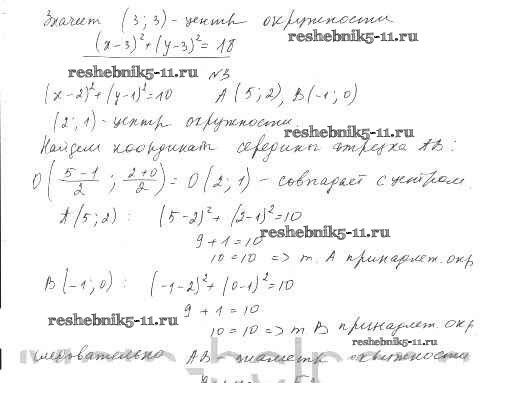 Значит (3; 3) - центр окружности
(x-3)²+(y-3)²=18
reshebnik5-11.ru
reshebnik5-11.ru
N3
(x-2)²+(y-1)²=10 A(5;2), B(-1;0)
(2;1) - центр окружности.
reshebnik5-11.ru
Найдем координат середины отрезка AB:
O((5-1)/2 ; (2+0)/2) = O(2;1) - совпадает с центром.
A(5;2): (5-2)²+(2-1)²=10
reshebnik5-11.ru
9+1=10
10=10 => т. A принадлет. окр
B(-1;0): (-1-2)²+(0-1)²=10
9+1=10
reshebnik5-11.ru
10=10 => т B принадлет. окр
reshebnik5-11.ru
следовательно AB - диаметр окружности